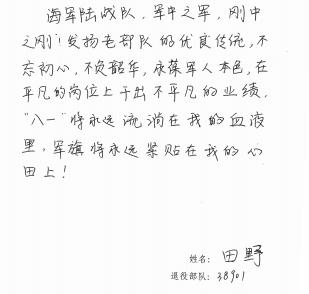 海军陆战队，军中之军，刚中
之刚！发扬老部队的优良传统，不
忘初心，不负韶华，永葆军人本色，在
平凡的岗位上干出不平凡的业绩，
"八一"将永远流淌在我的血液
里，军旗将永远紧贴在我的心
田上！
姓名：田野
退役部队：38901